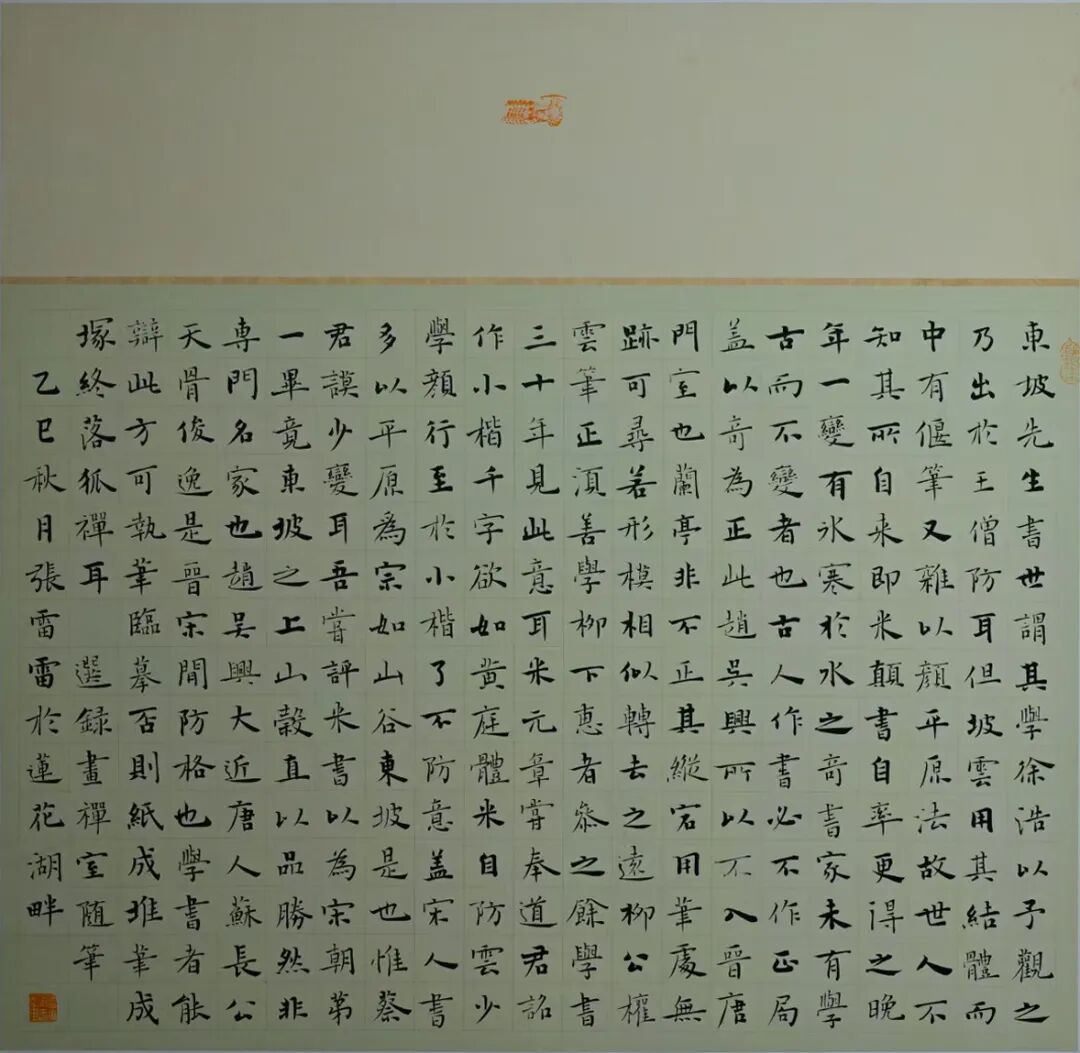 東坡先生書世謂其學徐浩以予觀之
乃出於王僧防耳但坡雲用其結體而
中有偃筆又雜以顏平原法故世人不
知其所自来即米顛書自率更得之晚
年一變有氷寒於水之奇書家未有學
古而不變者也古人作書必不作正局
盖以奇為正此趙吳興所以不入晉唐
門室也蘭亭非不正其縱宕用筆處無
跡可尋若形模相似轉去之遠柳公權
雲筆正湏善學柳下惠者叅之餘學書
三十年見此意耳米元章甞奉道君詔
作小楷千字欲如黄庭體米自防雲少
學顏行至於小楷了不防意盖宋人書
多以平原為宗如山谷東坡是也惟蔡
君謨少變耳吾甞評米書以為宋朝第
一畢竟東坡之上山榖直以品勝然非
専門名家也趙吳興大近唐人蘇長公
天骨俊逸是晉宋間防格也學書者能
辯此方可執筆臨摹否則紙成堆筆成
塚終落狐禪耳 選録畫禪室随筆
乙巳秋月張雷雷於蓮花湖畔